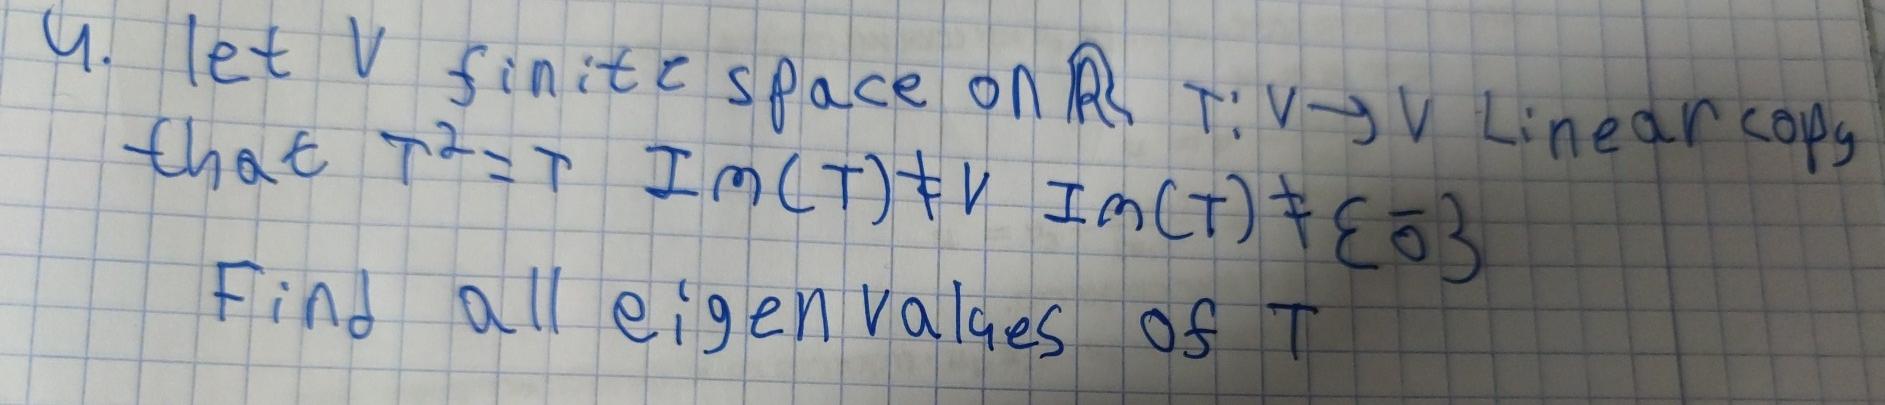 4. let V finite space on ℝ T: V→V Linear copy
that T²=T Im(T)≠V Im(T)≠{0̄}
Find all eigen values of T